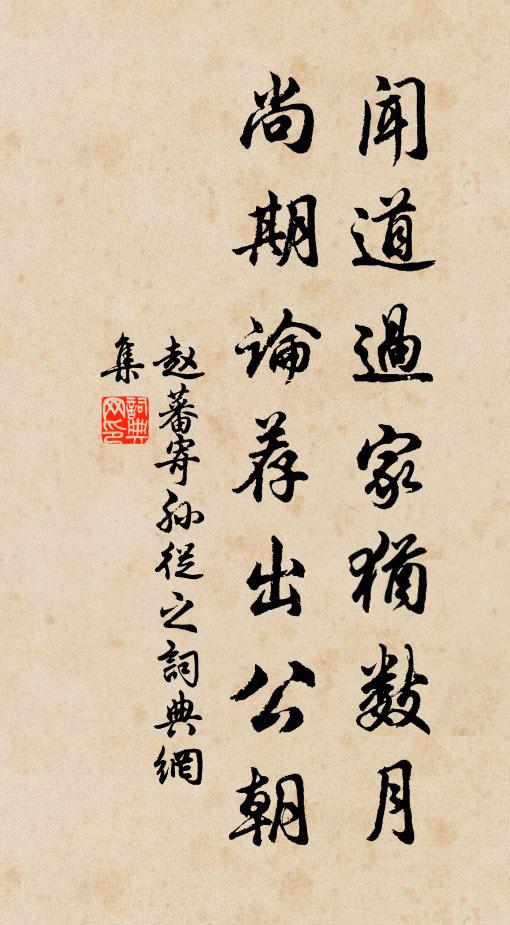 聞道過家猶数月
尚期论荐出公朝
赵蕃寄孙從之詞典網
集
詞典網印